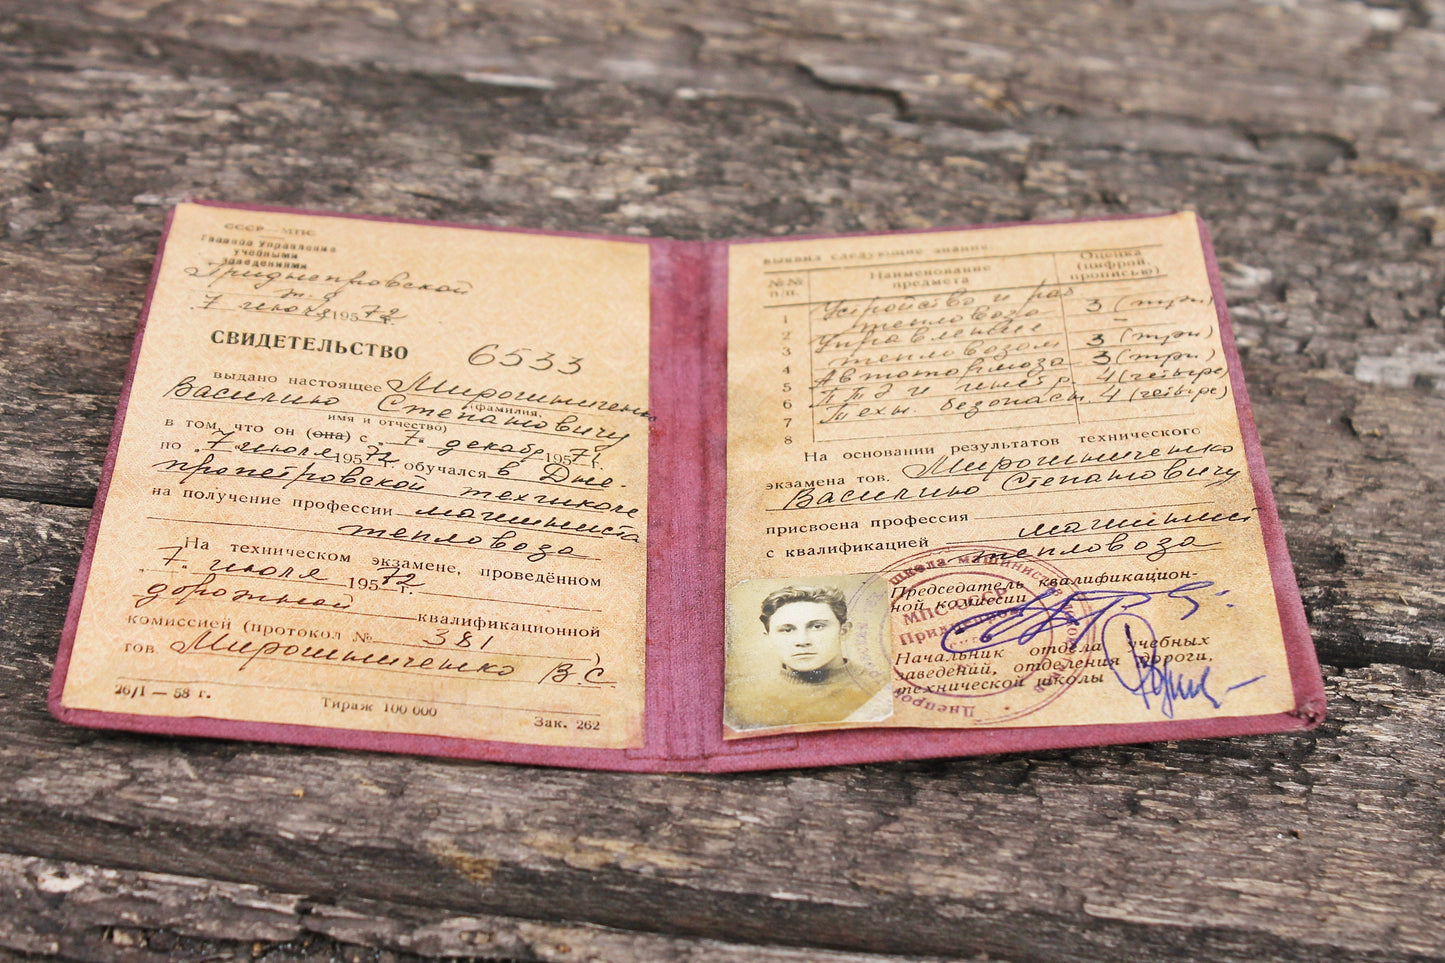 СССР — МПС
Главное Управление
учебными
заведениями
Приднепровской
ж. д.
7 июля 195 72 г.
СВИДЕТЕЛЬСТВО 6533
выдано настоящее Мирошниченко
(фамилия,
Василию Степановичу
имя и отчество)
в том, что он (она) с „7“ декабр 195 71 г.
по 7 июля 195 72 г. обучался в Дне-
пропетровской техшколе
на получение профессии машиниста
тепловоза
На техническом экзамене, проведённом
7. июля 195 72 г.
дорожной квалификационной
комиссией (протокол № 381 )
тов Мирошниченко В.С.
26/I — 58 г. Тираж 100 000 Зак. 262
выявил следующие знания
№№ п/п. Наименование предмета Оценка (цифрой, прописью)
1 Устройство и ра
2 тепловоза 3 (три)
3 Управление
4 тепловозом 3 (три)
5 Автотормоза 3 (три)
6 ПТЭ и 4 (четыре)
7 Техн. безопасн. 4 (четыре)
8
На основании результатов технического
экзамена тов. Мирошниченко
Василию Степановичу
присвоена профессия
с квалификацией машинист
тепловоза
Председатель квалификацион-
ной комиссии
Начальник отдела учебных
заведений, отделения дороги,
технической школы
школа машинистов
МПС СССР
Приднепров
Днепроп